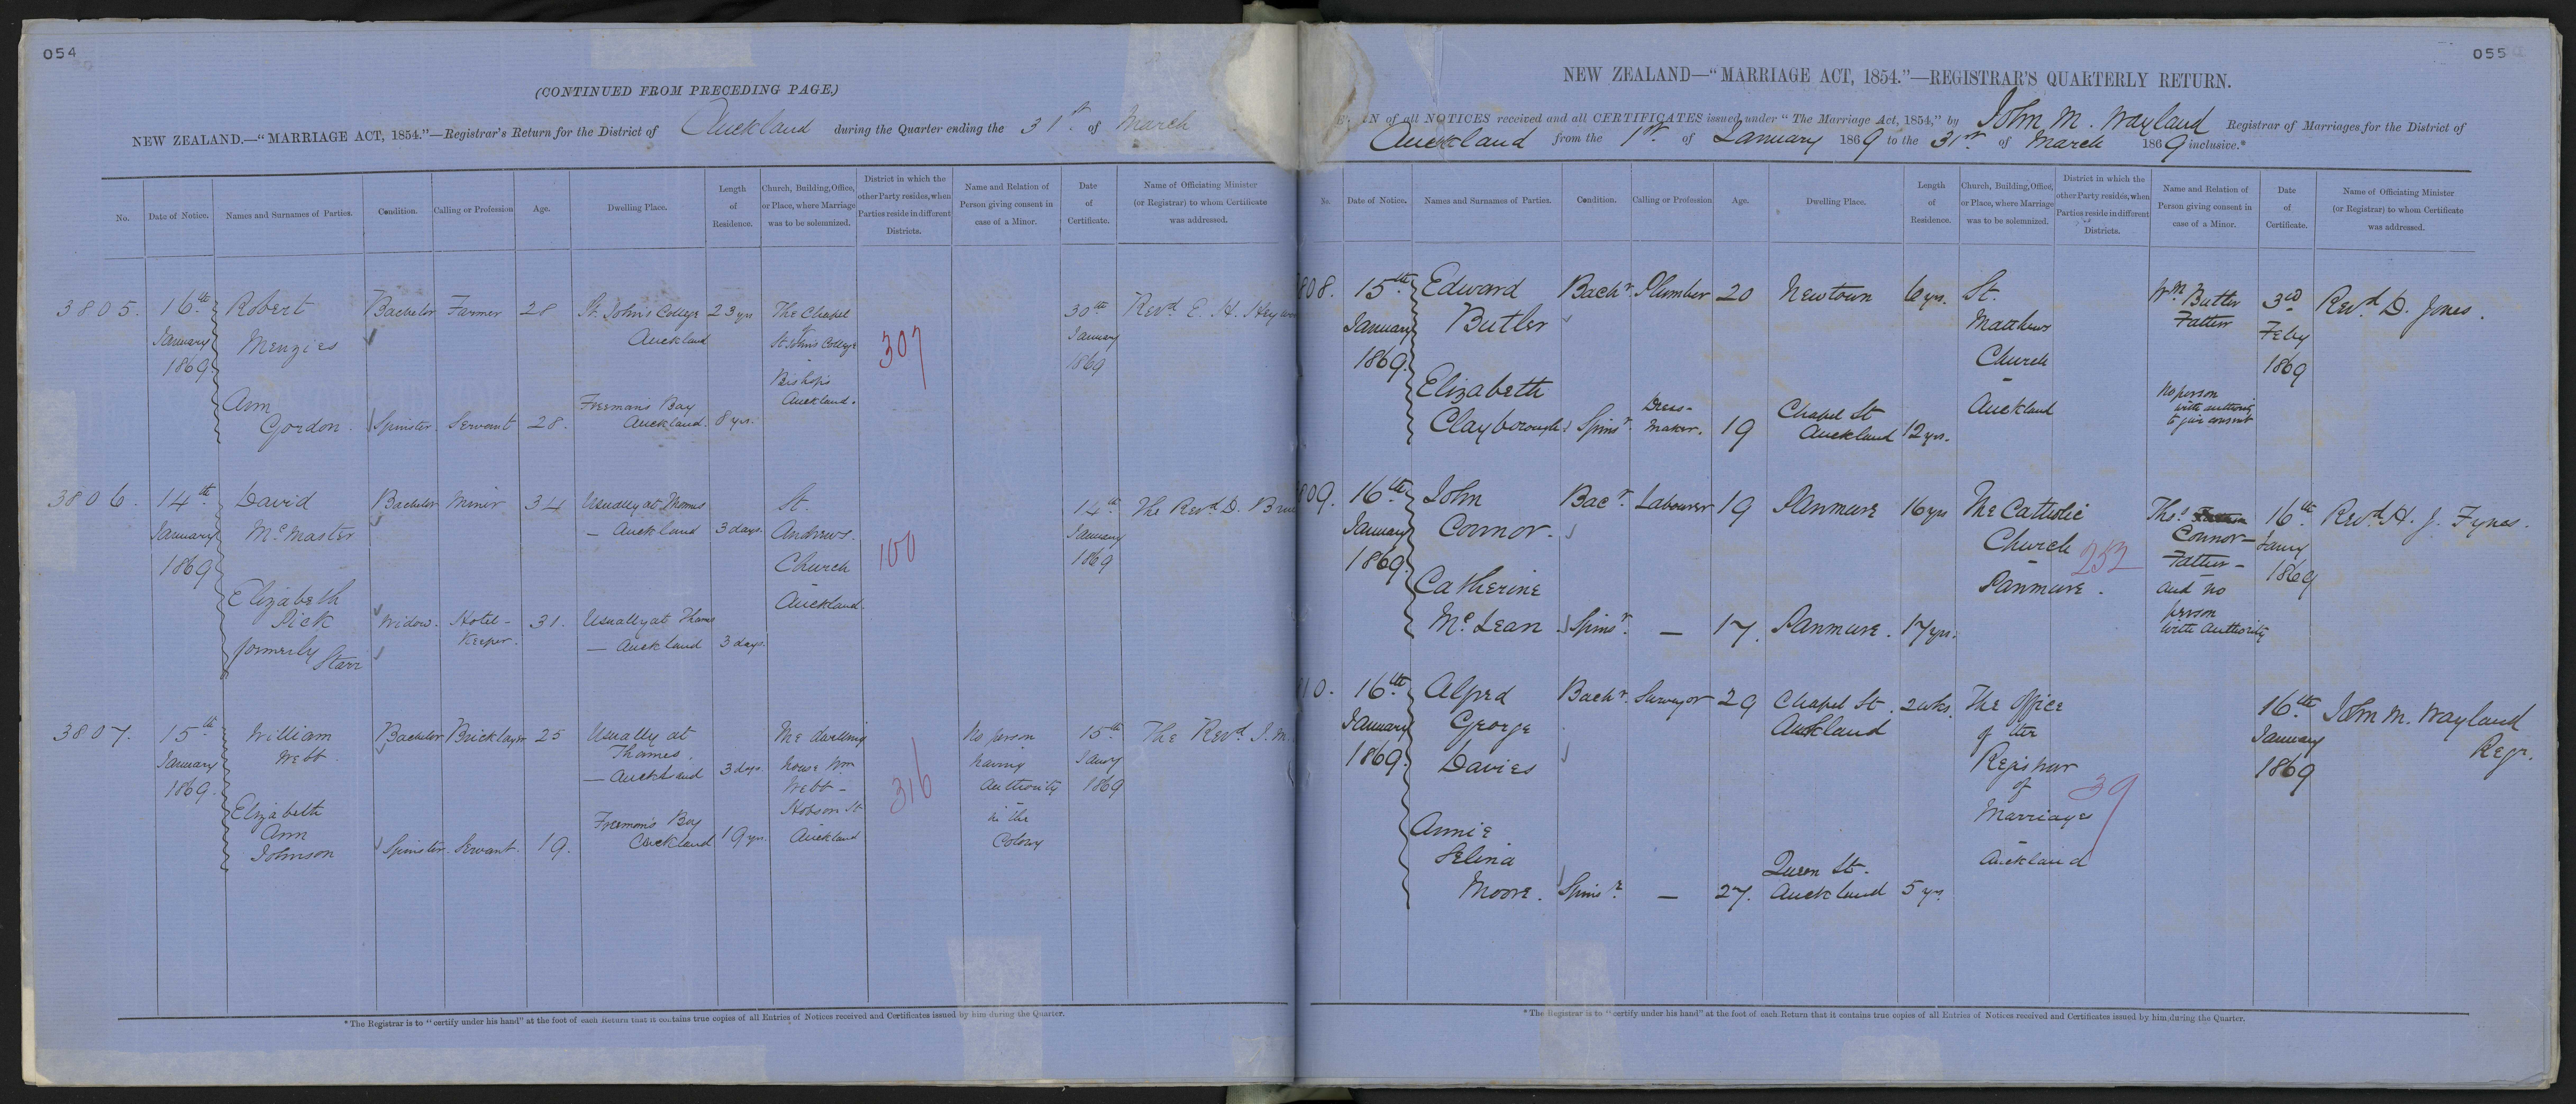 054
(CONTINUED FROM PRECEDING PAGE.)
NEW ZEALAND.—“MARRIAGE ACT, 1854.”—Registrar's Return for the District of Auckland during the Quarter ending the 31st. of March
No. Date of Notice. Names and Surnames of Parties. Condition. Calling or Profession Age. Dwelling Place. Length of Residence. Church, Building, Office, or Place, where Marriage was to be solemnized. District in which the other Party resides, when Parties reside in different Districts. Name and Relation of Person giving consent in case of a Minor. Date of Certificate. Name of Officiating Minister (or Registrar) to whom Certificate was addressed.
3805. 16th Robert Bachelor Farmer 28 St. John's College 23 yrs The Chapel 30th Revd E. H.
January Menzies Auckland St John's College 307 January
1869. Bishop's 1869
Ann Freeman's Bay Auckland.
Gordon. Spinster. Servant 28. Auckland. 8 yrs.
3806. 14th David Bachelor Miner 34 Usually at Thames St. 14th The Revd D.
January McMaster — Auckland 3 days. Andrews. 100 January
1869 Church 1869
Elizabeth Auckland.
Pick Widow. Hotel- 31. Usually at Thames
formerly Keeper. — Auckland 3 days.
Starr
3807. 15th William Bachelor Bricklayer 25 Usually at The dwelling No person 15th The Revd
January Webb Thames. house Wm having Jany
1869. — Auckland 3 days. Webb — 316 authority 1869
Elizabeth Freeman's Bay Hobson St in the
Ann Auckland 19 yrs. Auckland Colony
Johnson Spinster. Servant. 19.
*The Registrar is to “certify under his hand” at the foot of each Return that it contains true copies of all Entries of Notices received and Certificates issued by him during the Quarter.
055
NEW ZEALAND—“MARRIAGE ACT, 1854.”—REGISTRAR'S QUARTERLY RETURN.
of all NOTICES received and all CERTIFICATES issued under “The Marriage Act, 1854,” by John M. Wayland Registrar of Marriages for the District of
Auckland from the 1st. of January 1869 to the 31st of March 1869 inclusive.*
No. Date of Notice. Names and Surnames of Parties. Condition. Calling or Profession Age. Dwelling Place. Length of Residence. Church, Building, Office, or Place, where Marriage was to be solemnized. District in which the other Party resides, when Parties reside in different Districts. Name and Relation of Person giving consent in case of a Minor. Date of Certificate. Name of Officiating Minister (or Registrar) to whom Certificate was addressed.
808. 15th Edward Bachr. Plumber 20 Newtown 6 yrs. St. Wm Butler 3rd Revd D. Jones.
January Butler Matthews Father Feby
1869. Church 1869
Elizabeth Dress- Chapel St Auckland No person
Clayborough Spinsr. maker. 19 Auckland 12 yrs. with authority
to give consent
809. 16th John Bacr. Labourer 19 Panmure 16 yrs The Catholic Thos. 16th Revd H. J. Fynes.
January Connor. Church 252 Connor — Jany
1869. Panmure. Father — 1869
Catherine and no
McLean Spinsr. — 17. Panmure. 17 yrs. person
with authority
10. 16th Alfred Bachr. Surveyor 29 Chapel St. 2 wks. The Office 16th John M. Wayland
January George Auckland of the January Regr.
1869. Davies Registrar 1869
of 39
Annie Marriages
Selina Queen St. Auckland
Moore. Spinsr. — 27. Auckland 5 yrs.
*The Registrar is to “certify under his hand” at the foot of each Return that it contains true copies of all Entries of Notices received and Certificates issued by him during the Quarter.